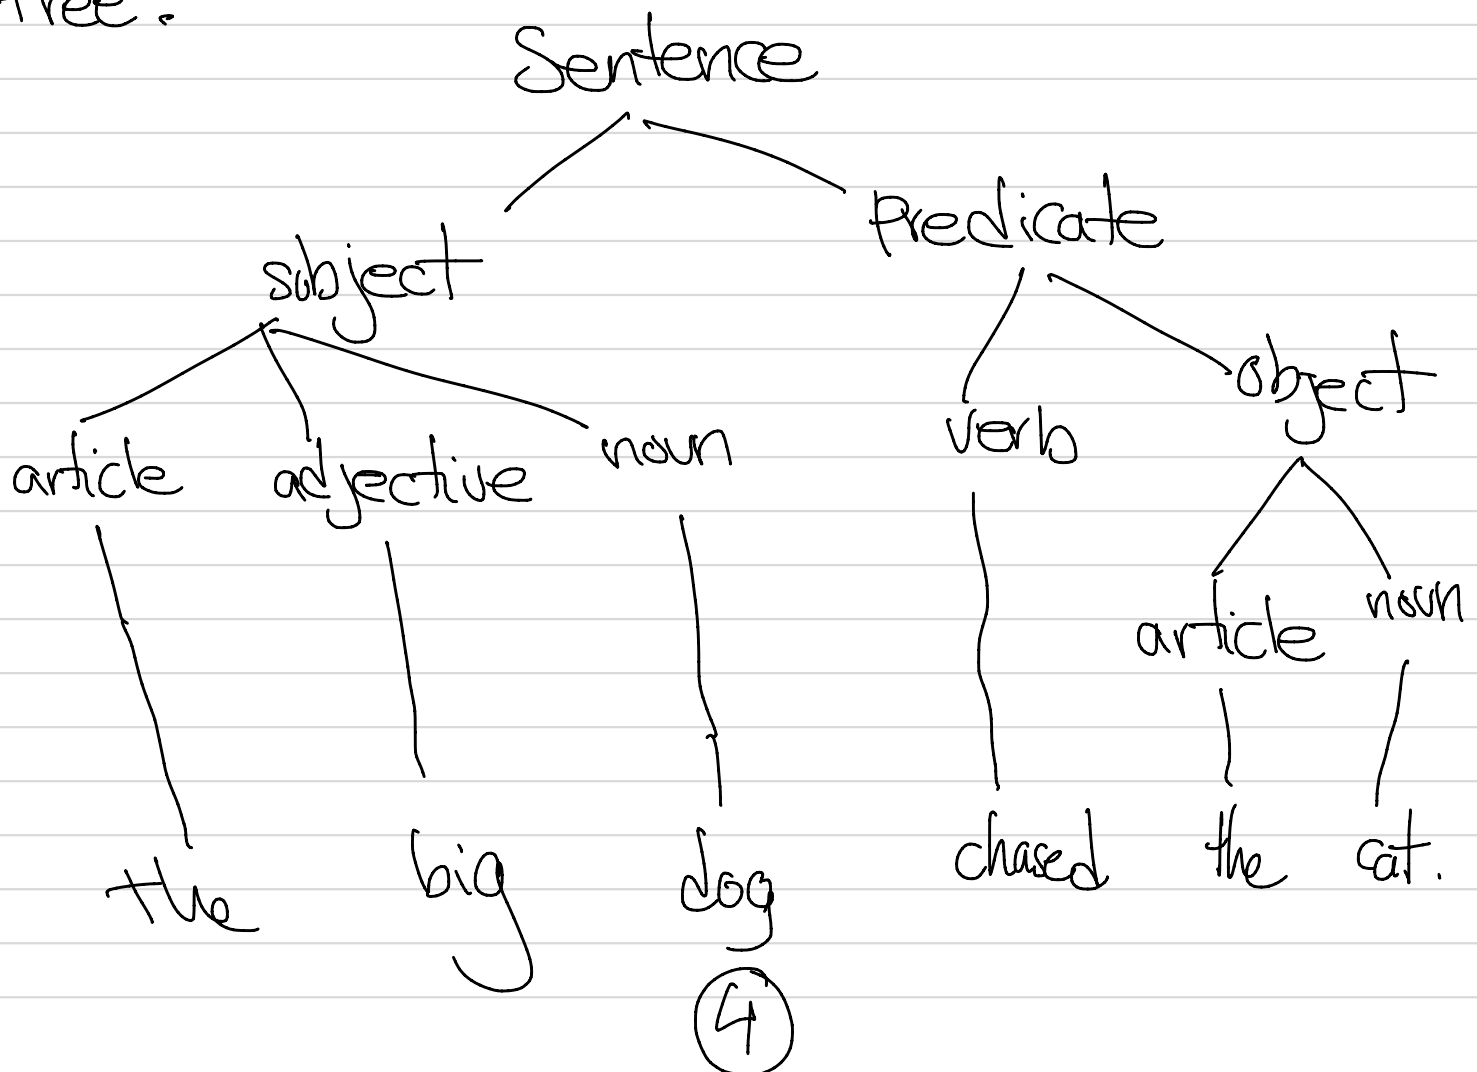 Tree.
Sentence
subject Predicate
article adjective noun verb object
article noun
the big dog chased the cat.
4